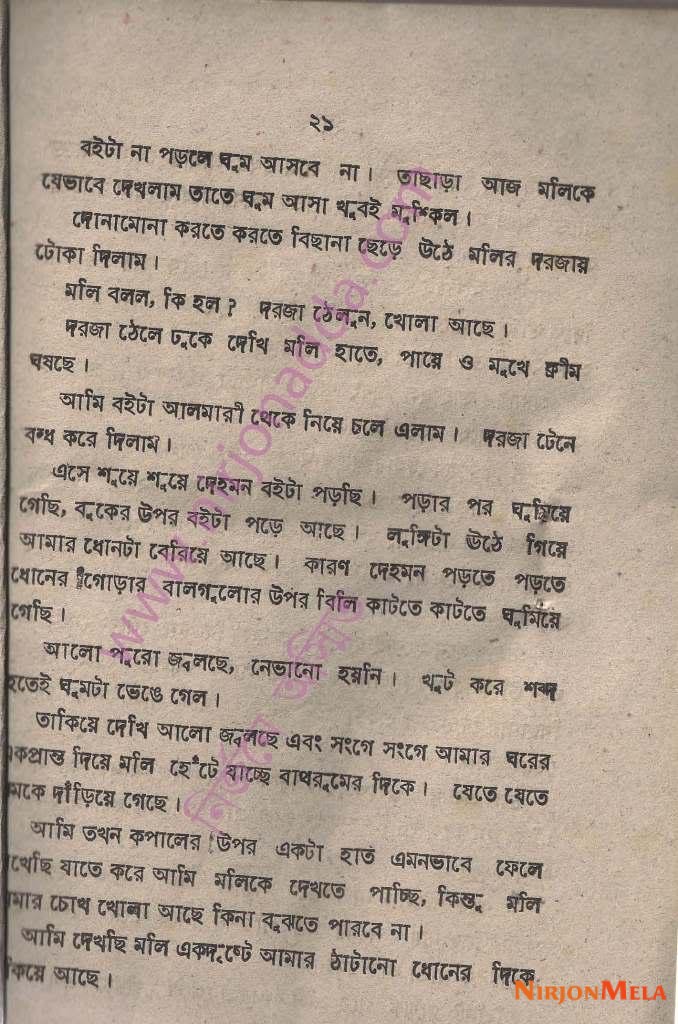 ২১
বইটা না পড়লে ঘুম আসবে না। তাছাড়া আজ মলিকে
যেভাবে দেখলাম তাতে ঘুম আসা খুবই মুশ্কিল।
দোনামোনা করতে করতে বিছানা ছেড়ে উঠে মলির দরজায়
টোকা দিলাম।
মলি বলল, কি হল? দরজা ঠেলুন, খোলা আছে।
দরজা ঠেলে ঢুকে দেখি মলি হাতে, পায়ে ও মুখে ক্রীম
ঘষছে।
আমি বইটা আলমারী থেকে নিয়ে চলে এলাম। দরজা টেনে
বন্ধ করে দিলাম।
এসে শুয়ে শুয়ে দেহমন বইটা পড়ছি। পড়ার পর ঘুমিয়ে
গেছি, বুকের উপর বইটা পড়ে আছে। লুঙ্গিটা উঠে গিয়ে
আমার ধোনটা বেরিয়ে আছে। কারণ দেহমন পড়তে পড়তে
ধোনের গোড়ার বালগুলোর উপর বিলি কাটতে কাটতে ঘুমিয়ে
গেছি।
আলো পুরো জ্বলছে, নেভানো হয়নি। খুট করে শব্দ
হতেই ঘুমটা ভেঙে গেল।
তাকিয়ে দেখি আলো জ্বলছে এবং সংগে সংগে আমার ঘরের
একপ্রান্ত দিয়ে মলি হেঁটে যাচ্ছে বাথরুমের দিকে। যেতে যেতে
মকে দাঁড়িয়ে গেছে।
আমি তখন কপালের উপর একটা হাত এমনভাবে ফেলে
খেছি যাতে করে আমি মলিকে দেখতে পাচ্ছি, কিন্তু মলি
মার চোখ খোলা আছে কিনা বুঝতে পারবে না।
আমি দেখছি মলি একদৃষ্টে আমার ঠাটানো ধোনের দিকে
কিয়ে আছে।
www.nirjonadda.com
NIRJONMELA